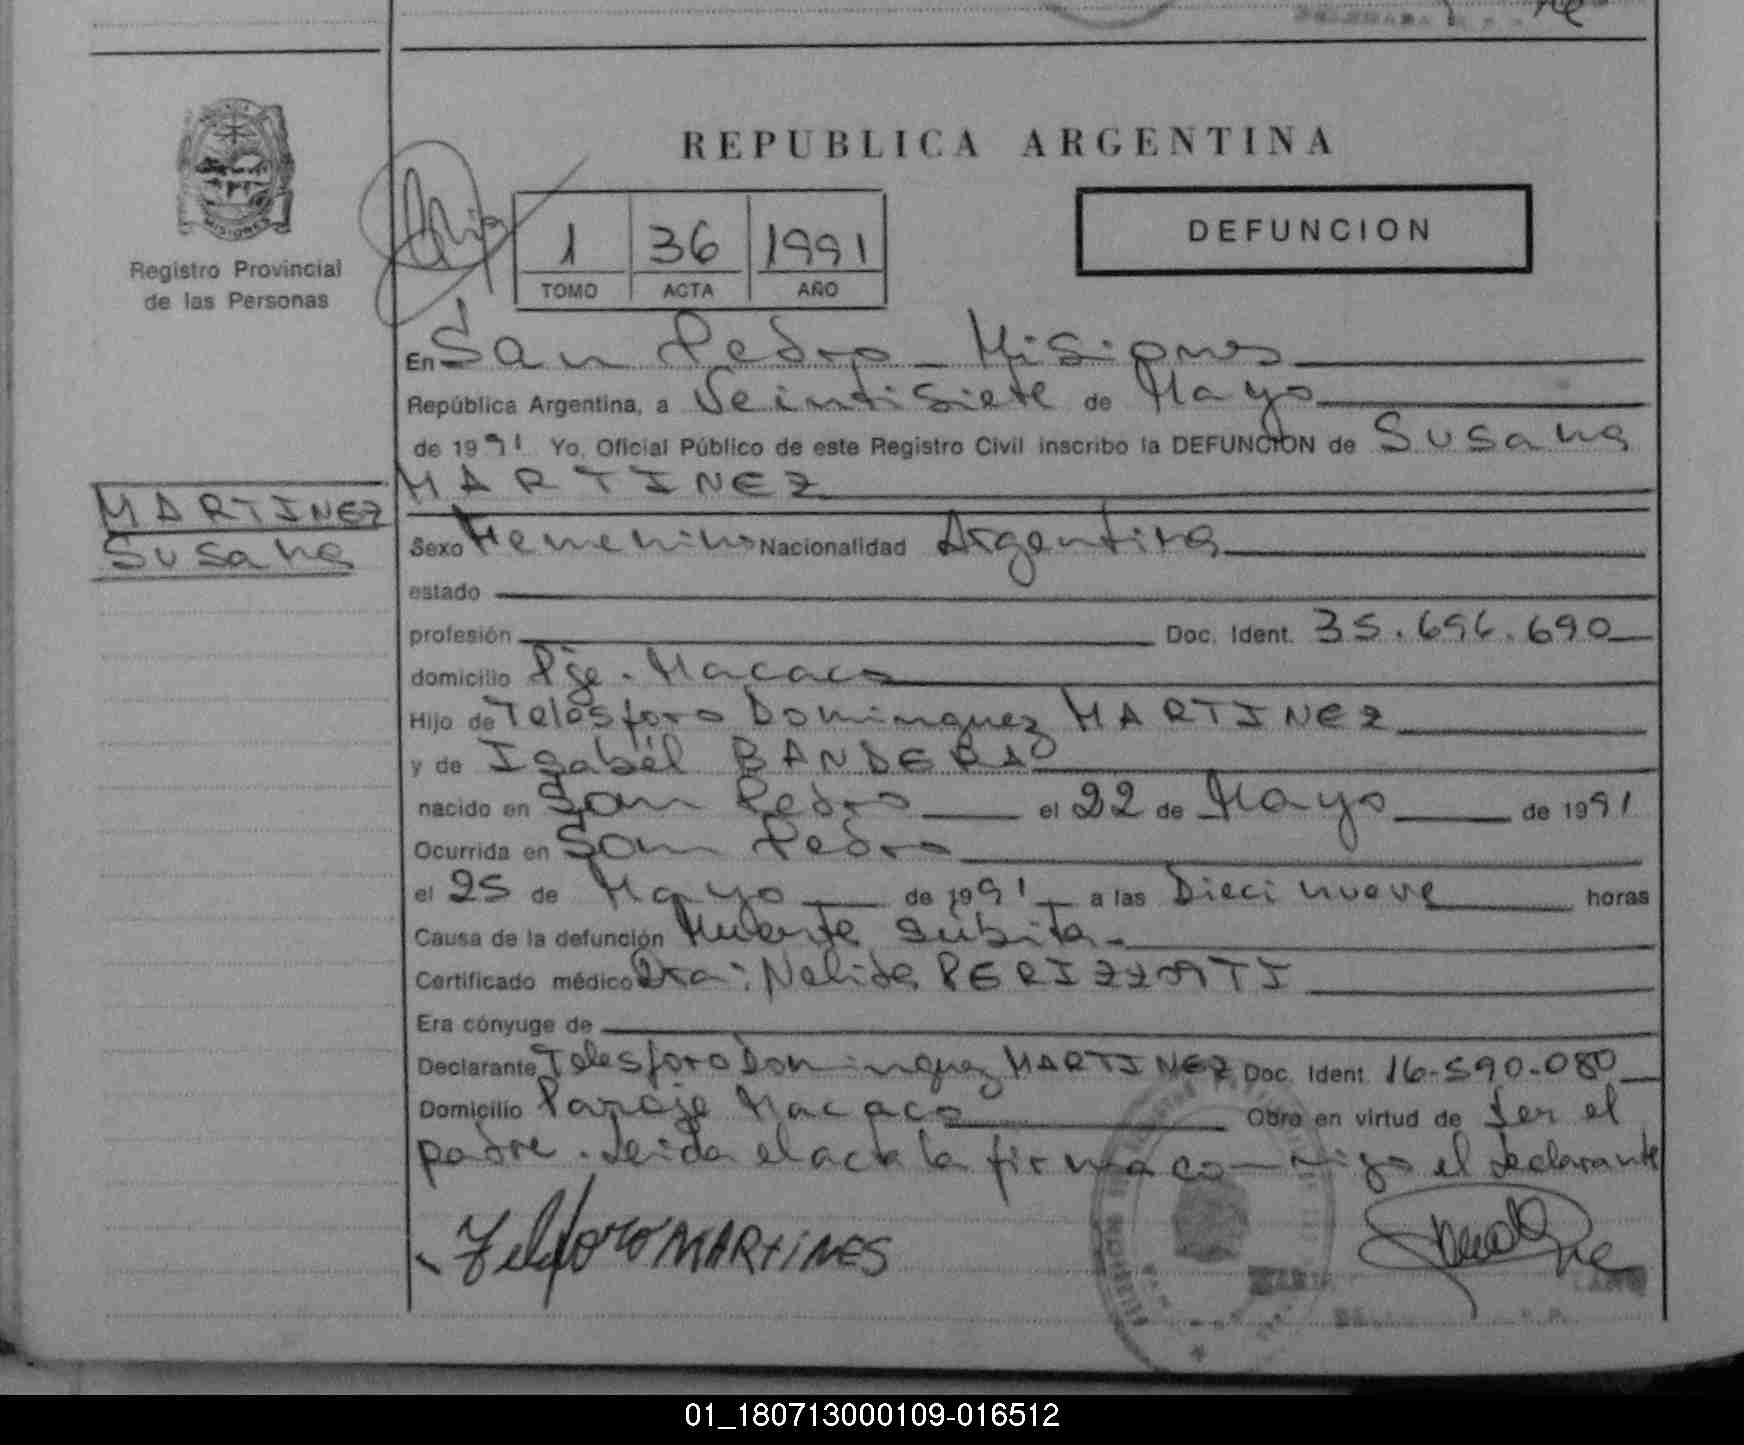 REPUBLICA ARGENTINA
DEFUNCION
MISIONES
Registro Provincial
de las Personas
1 36 1991
TOMO ACTA AÑO
En San Pedro - Misiones
República Argentina, a Veintisiete de Mayo
de 1991 Yo, Oficial Público de este Registro Civil inscribo la DEFUNCION de Susana
MARTINEZ
MARTINEZ
Susana
Sexo Femenino Nacionalidad Argentina
estado
profesión Doc. Ident. 35.696.690
domicilio Pje. Macaco
Hijo de Telesforo Dominguez MARTINEZ
y de Isabél BANDERA
nacido en San Pedro el 22 de Mayo de 1991
Ocurrida en San Pedro
el 25 de Mayo de 1991 a las Diecinueve horas
Causa de la defunción Muerte súbita.
Certificado médico Dra: Nelida
Era cónyuge de
Declarante Telesforo Dominguez MARTINEZ Doc. Ident. 16-590-080
Domicilio Paraje Macaco Obra en virtud de Ser el
padre. Leida el acta la firma conmigo el declarante
Telesforo MARTINES
01_180713000109-016512